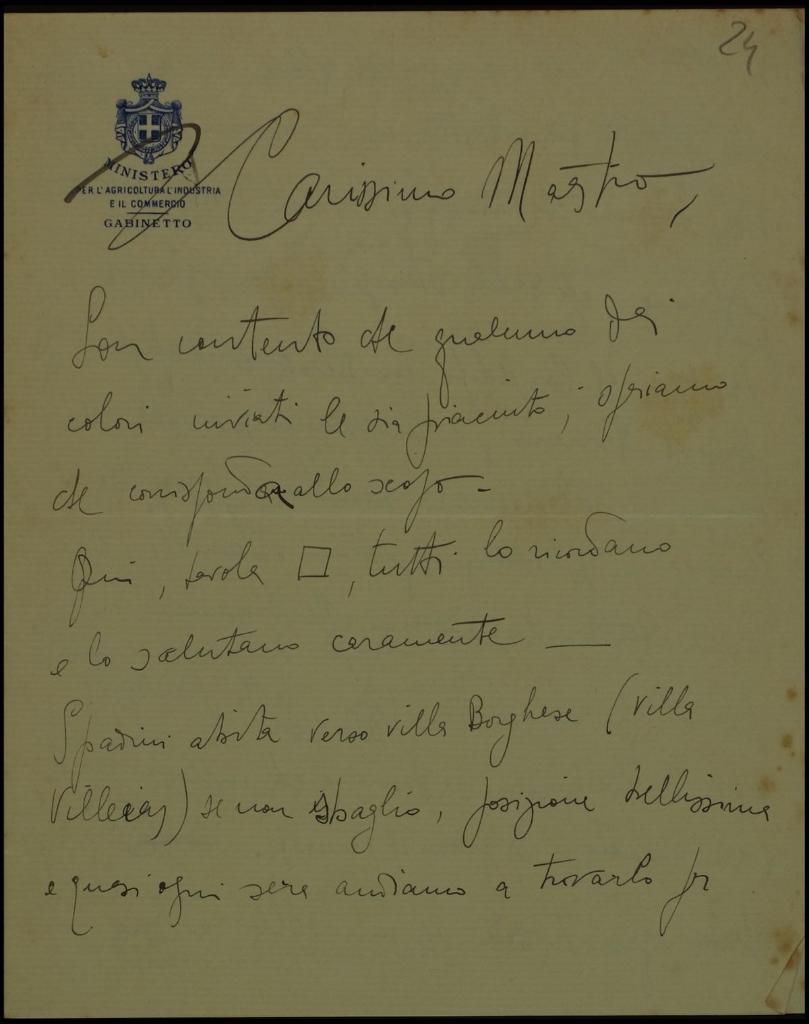 24
MINISTERO
PER L'AGRICOLTURA L'INDUSTRIA
E IL COMMERCIO
GABINETTO
Carissimo Maestro,
Son contento che qualcuno dei
colori inviati le sia piaciuto; speriamo
che corrispondan allo scopo -
Qui, tavola □, tutti lo ricordano
e lo salutano caramente —
Spadini abita verso villa Borghese (villa
) se non sbaglio, posizione bellissima
e quasi ogni sera andiamo a trovarlo per